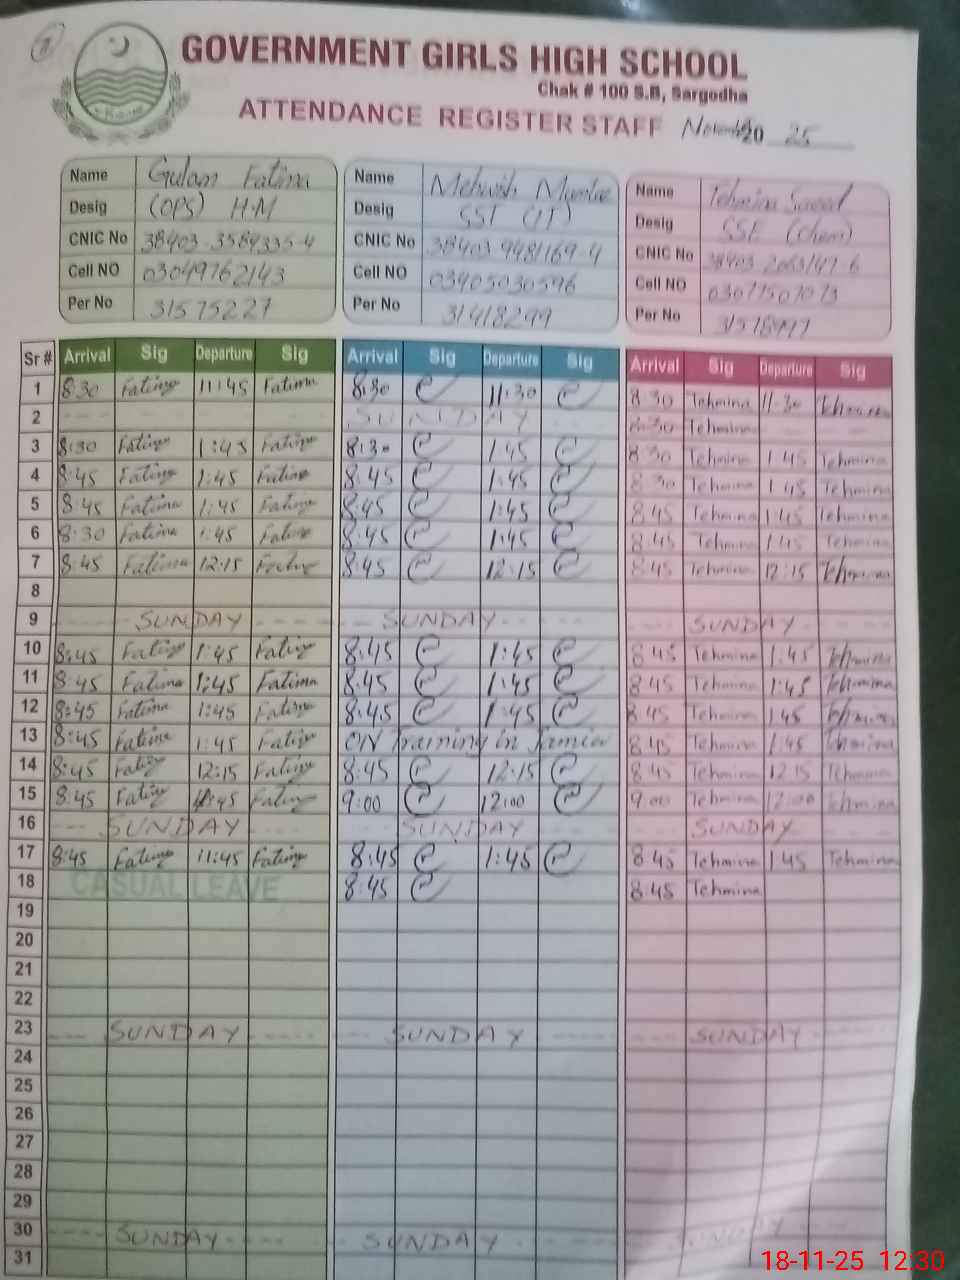 GOVERNMENT GIRLS HIGH SCHOOL
Chak # 100 S.B, Sargodha
ATTENDANCE REGISTER STAFF November 20 25
Name Gulam Fatima Name Mehwish Name Tehmina Saeed
Desig (OPS) H.M Desig SST (IT) Desig SSE (Chem)
CNIC No 38403-3584335-4 CNIC No 38403 9481169-4 CNIC No
Cell NO 03049762143 Cell NO 03405030596 Cell NO
Per No 31575227 Per No 31418299 Per No
Sr # Arrival Sig Departure Sig Arrival Sig Departure Sig Arrival Sig Departure Sig
1 8:30 Fatima 11:45 Fatima 8:30 11:30 8 30 Tehmina 11-30 Tehmina
2 SUNDAY 8-30 Tehmina
3 8:30 Fatima 1:45 Fatima 8:30 1:45 8 30 Tehmina 1 45 Tehmina
4 8:45 Fatima 1:45 Fatima 8:45 1:45 8 30 Tehmina 1 45 Tehmina
5 8:45 Fatima 1:45 Fatima 8:45 1:45 8 45 Tehmina 1 45 Tehmina
6 8:30 Fatima 1:45 Fatima 8:45 1:45 8 45 Tehmina 1 45 Tehmina
7 8:45 Fatima 12:15 Fatima 8:45 12:15 8 45 Tehmina 12:15 Tehmina
8
9 SUNDAY SUNDAY SUNDAY
10 8:45 Fatima 1:45 Fatima 8:45 1:45 8 45 Tehmina 1:45 Tehmina
11 8:45 Fatima 1:45 Fatima 8:45 1:45 8 45 Tehmina 1:45 Tehmina
12 8:45 Fatima 1:45 Fatima 8:45 1:45 8 45 Tehmina 1 45 Tehmina
13 8:45 Fatima 1:45 Fatima ON Training in 8 45 Tehmina 1:45 Tehmina
14 8:45 Fatima 12:15 Fatima 8:45 12:15 8 45 Tehmina 12 15 Tehmina
15 8:45 Fatima :45 Fatima 9:00 12:00 9:00 Tehmina 12:00 Tehmina
16 SUNDAY SUNDAY SUNDAY
17 8:45 Fatima 11:45 Fatima 8:45 1:45 8 45 Tehmina 1 45 Tehmina
18 CASUAL LEAVE 8:45 8 45 Tehmina
19
20
21
22
23 SUNDAY SUNDAY SUNDAY
24
25
26
27
28
29
30 SUNDAY SUNDAY SUNDAY
31
18-11-25 12:30